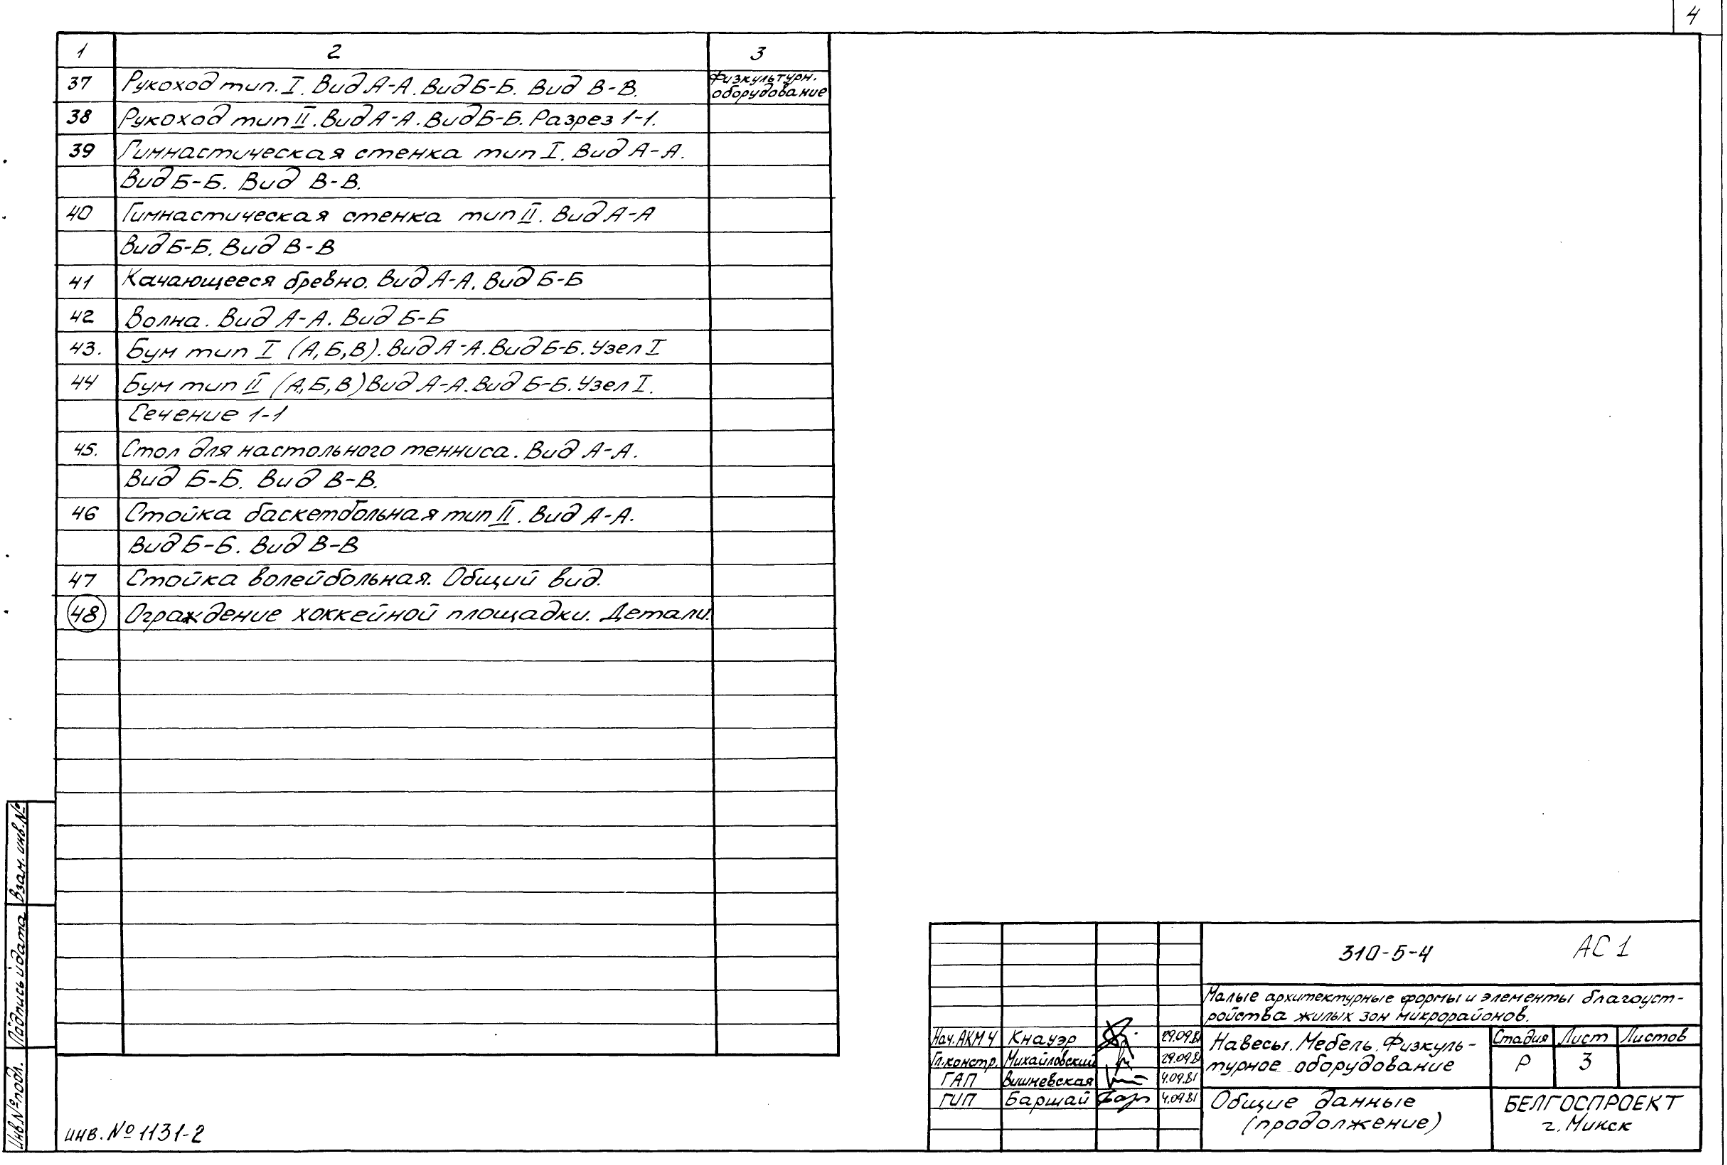 4
1 2 3
37 Рукоход тип. I. Вид А-А. Вид Б-Б. Вид В-В. Физкультурн. оборудование
38 Рукоход тип II. Вид А-А. Вид Б-Б. Разрез 1-1.
39 Гимнастическая стенка тип I. Вид А-А.
Вид Б-Б. Вид В-В.
40 Гимнастическая стенка тип II. Вид А-А
Вид Б-Б. Вид В-В
41 Качающееся бревно. Вид А-А. Вид Б-Б
42 Волна. Вид А-А. Вид Б-Б
43. Бум тип I (А,Б,В). Вид А-А. Вид Б-Б. Узел I
44 Бум тип II (А,Б,В) Вид А-А. Вид Б-Б. Узел I.
Сечение 1-1
45. Стол для настольного тенниса. Вид А-А.
Вид Б-Б. Вид В-В.
46 Стойка баскетбольная тип II. Вид А-А.
Вид Б-Б. Вид В-В
47 Стойка волейбольная. Общий вид.
48 Ограждение хоккейной площадки. Детали.
Взам. инв. №
Подпись и дата
Инв. № подл.
инв. № 1131-2
310-5-4 АС 1
Малые архитектурные формы и элементы благоуст-
ройства жилых зон микрорайонов.
Нач. АКМ 4 Кнауэр 29.09.81
Гл. констр. Михайловский 29.09.81
ГАП Вишневская 4.09.81
ГИП Баршай 4.09.81
Навесы. Мебель. Физкуль-
турное оборудование
Стадия Лист Листов
Р 3
Общие данные
(продолжение)
БЕЛГОСПРОЕКТ
г. Минск